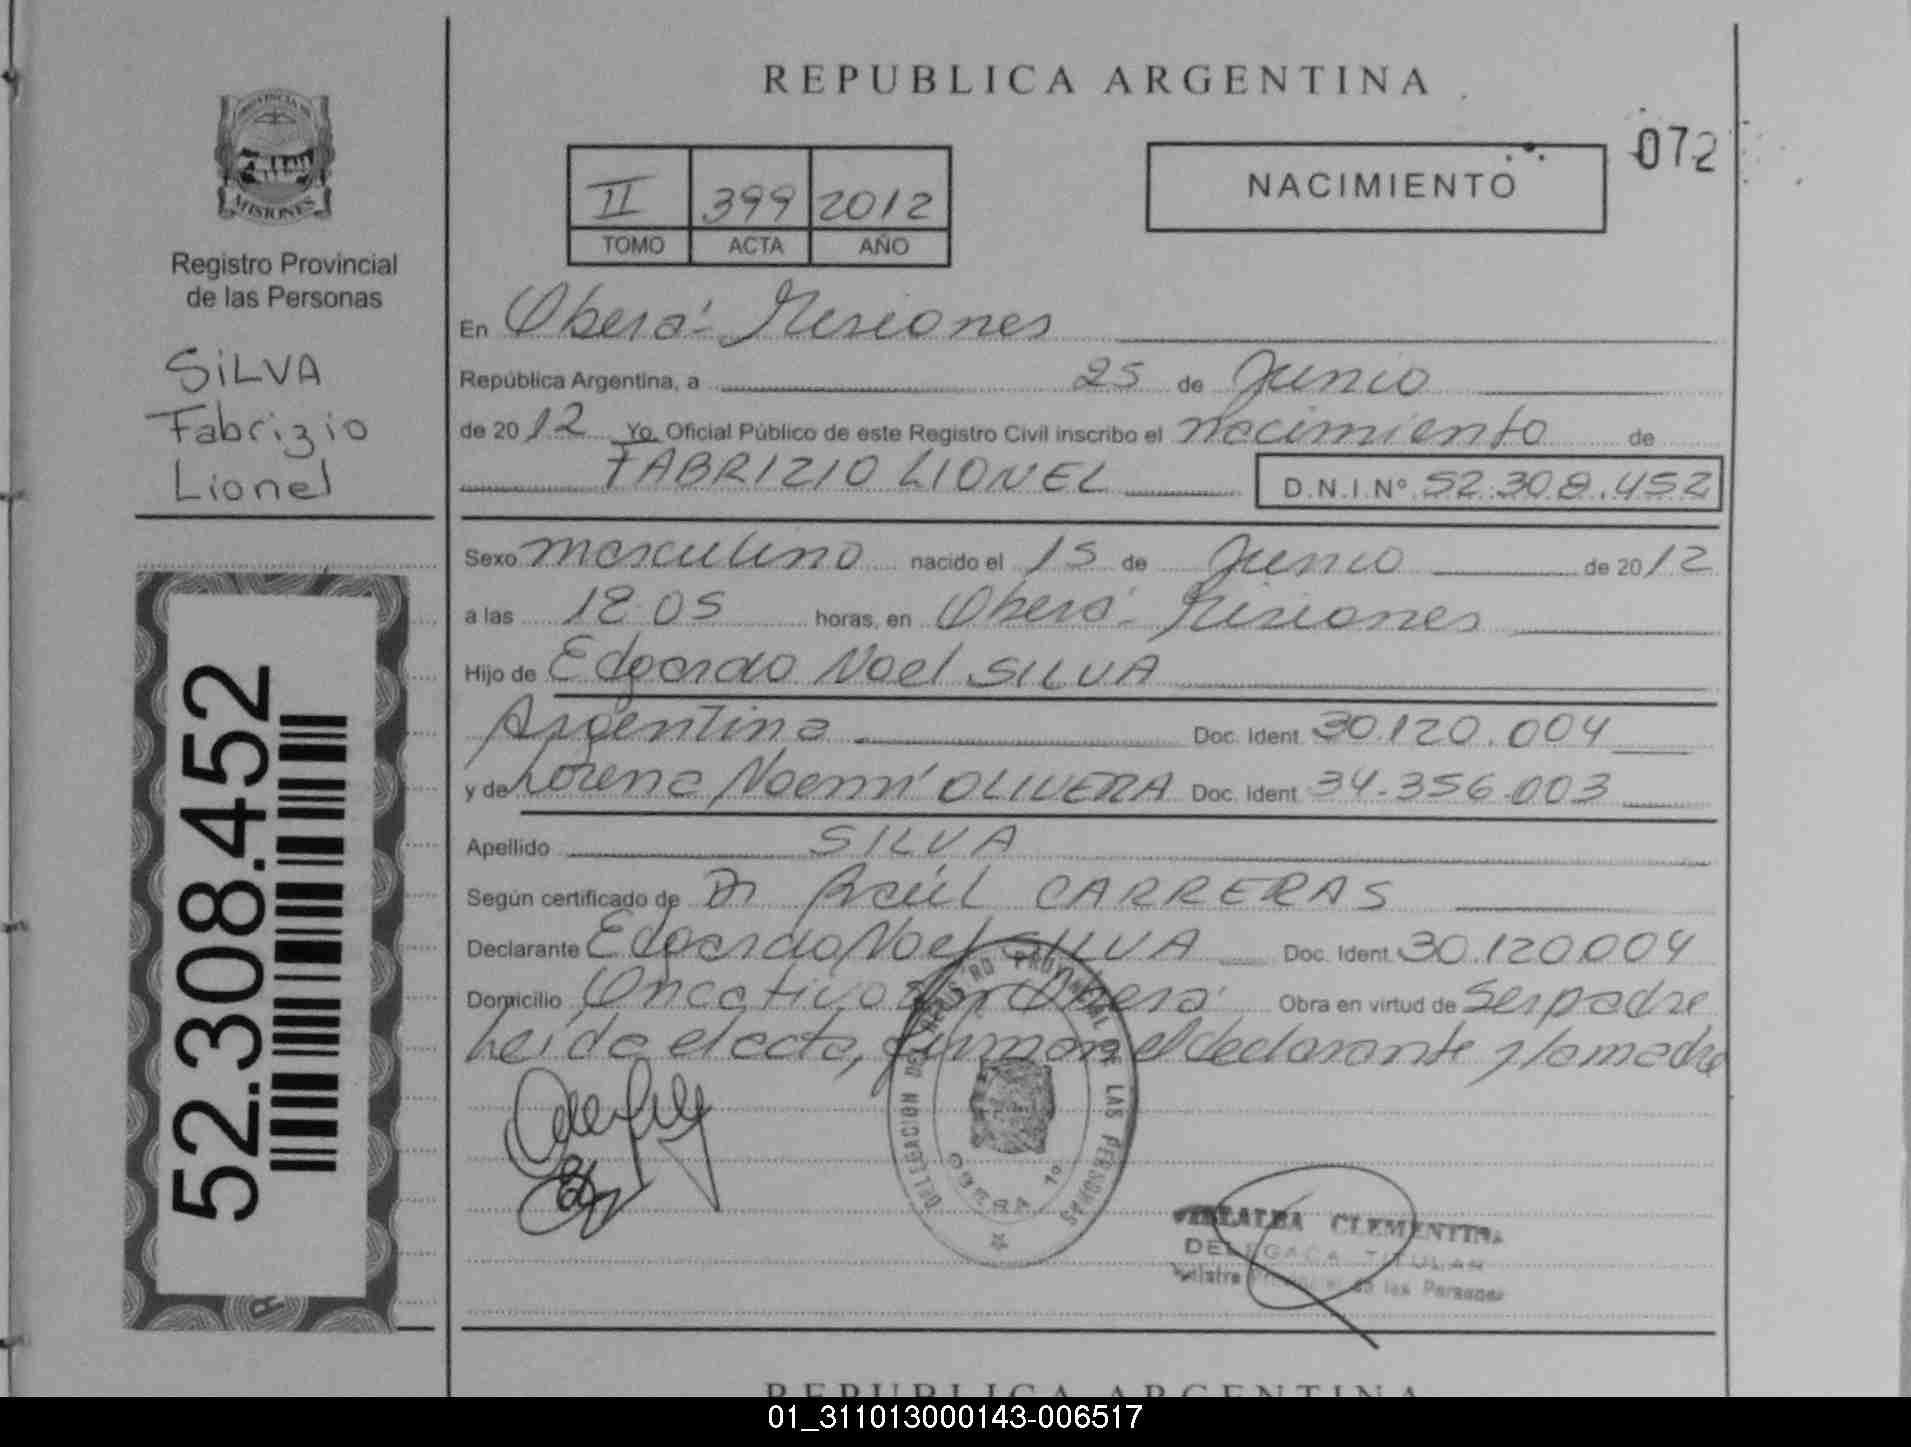 REPUBLICA ARGENTINA
072
II 399 2012
TOMO ACTA AÑO
NACIMIENTO
PROVINCIA DE
MISIONES
Registro Provincial
de las Personas
SILVA
Fabrizio
Lionel
52.308.452
En Oberá - Misiones
República Argentina, a 25 de Junio
de 2012 Yo Oficial Público de este Registro Civil inscribo el nacimiento de
FABRIZIO LIONEL D.N.I.Nº 52.308.452
Sexo masculino nacido el 15 de Junio de 2012
a las 18:05 horas, en Oberá - Misiones
Hijo de Edgardo Noel SILVA
Argentina Doc. Ident. 30.120.004
y de Lorena Noemí OLIVERA Doc. Ident. 34.356.003
Apellido SILVA
Según certificado de Dr Raúl CARRERAS
Declarante Edgardo Noel SILVA Doc. Ident. 30.120.004
Domicilio Oncativo Oberá Obra en virtud de Ser padre
Leída el acta, firman el declarante y la madre
DELEGACION DEL REGISTRO PROVINCIAL DE LAS PERSONAS
CLEMENTINA
DELEGADA TITULAR
Registro Provincial de las Personas
REPUBLICA ARGENTINA
01_311013000143-006517